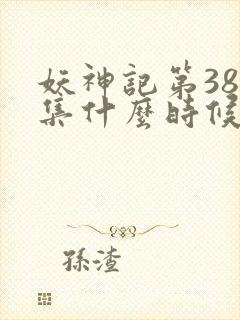 妖神記第38
集什麼時候
孫渣